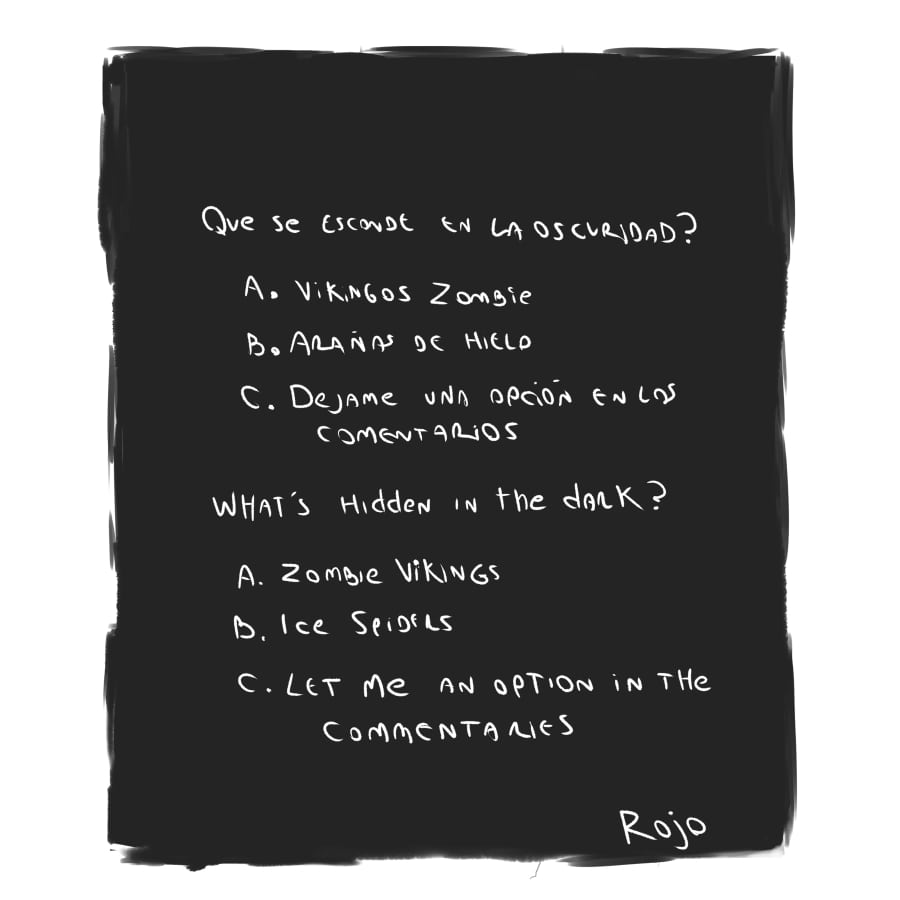 Que se esconde en la oscuridad?
A. Vikingos Zombie
B. Arañas de hielo
C. Dejame una opción en los
comentarios
What's hidden in the dark?
A. Zombie Vikings
B. Ice Spiders
C. Let me an option in the
commentaries
Rojo